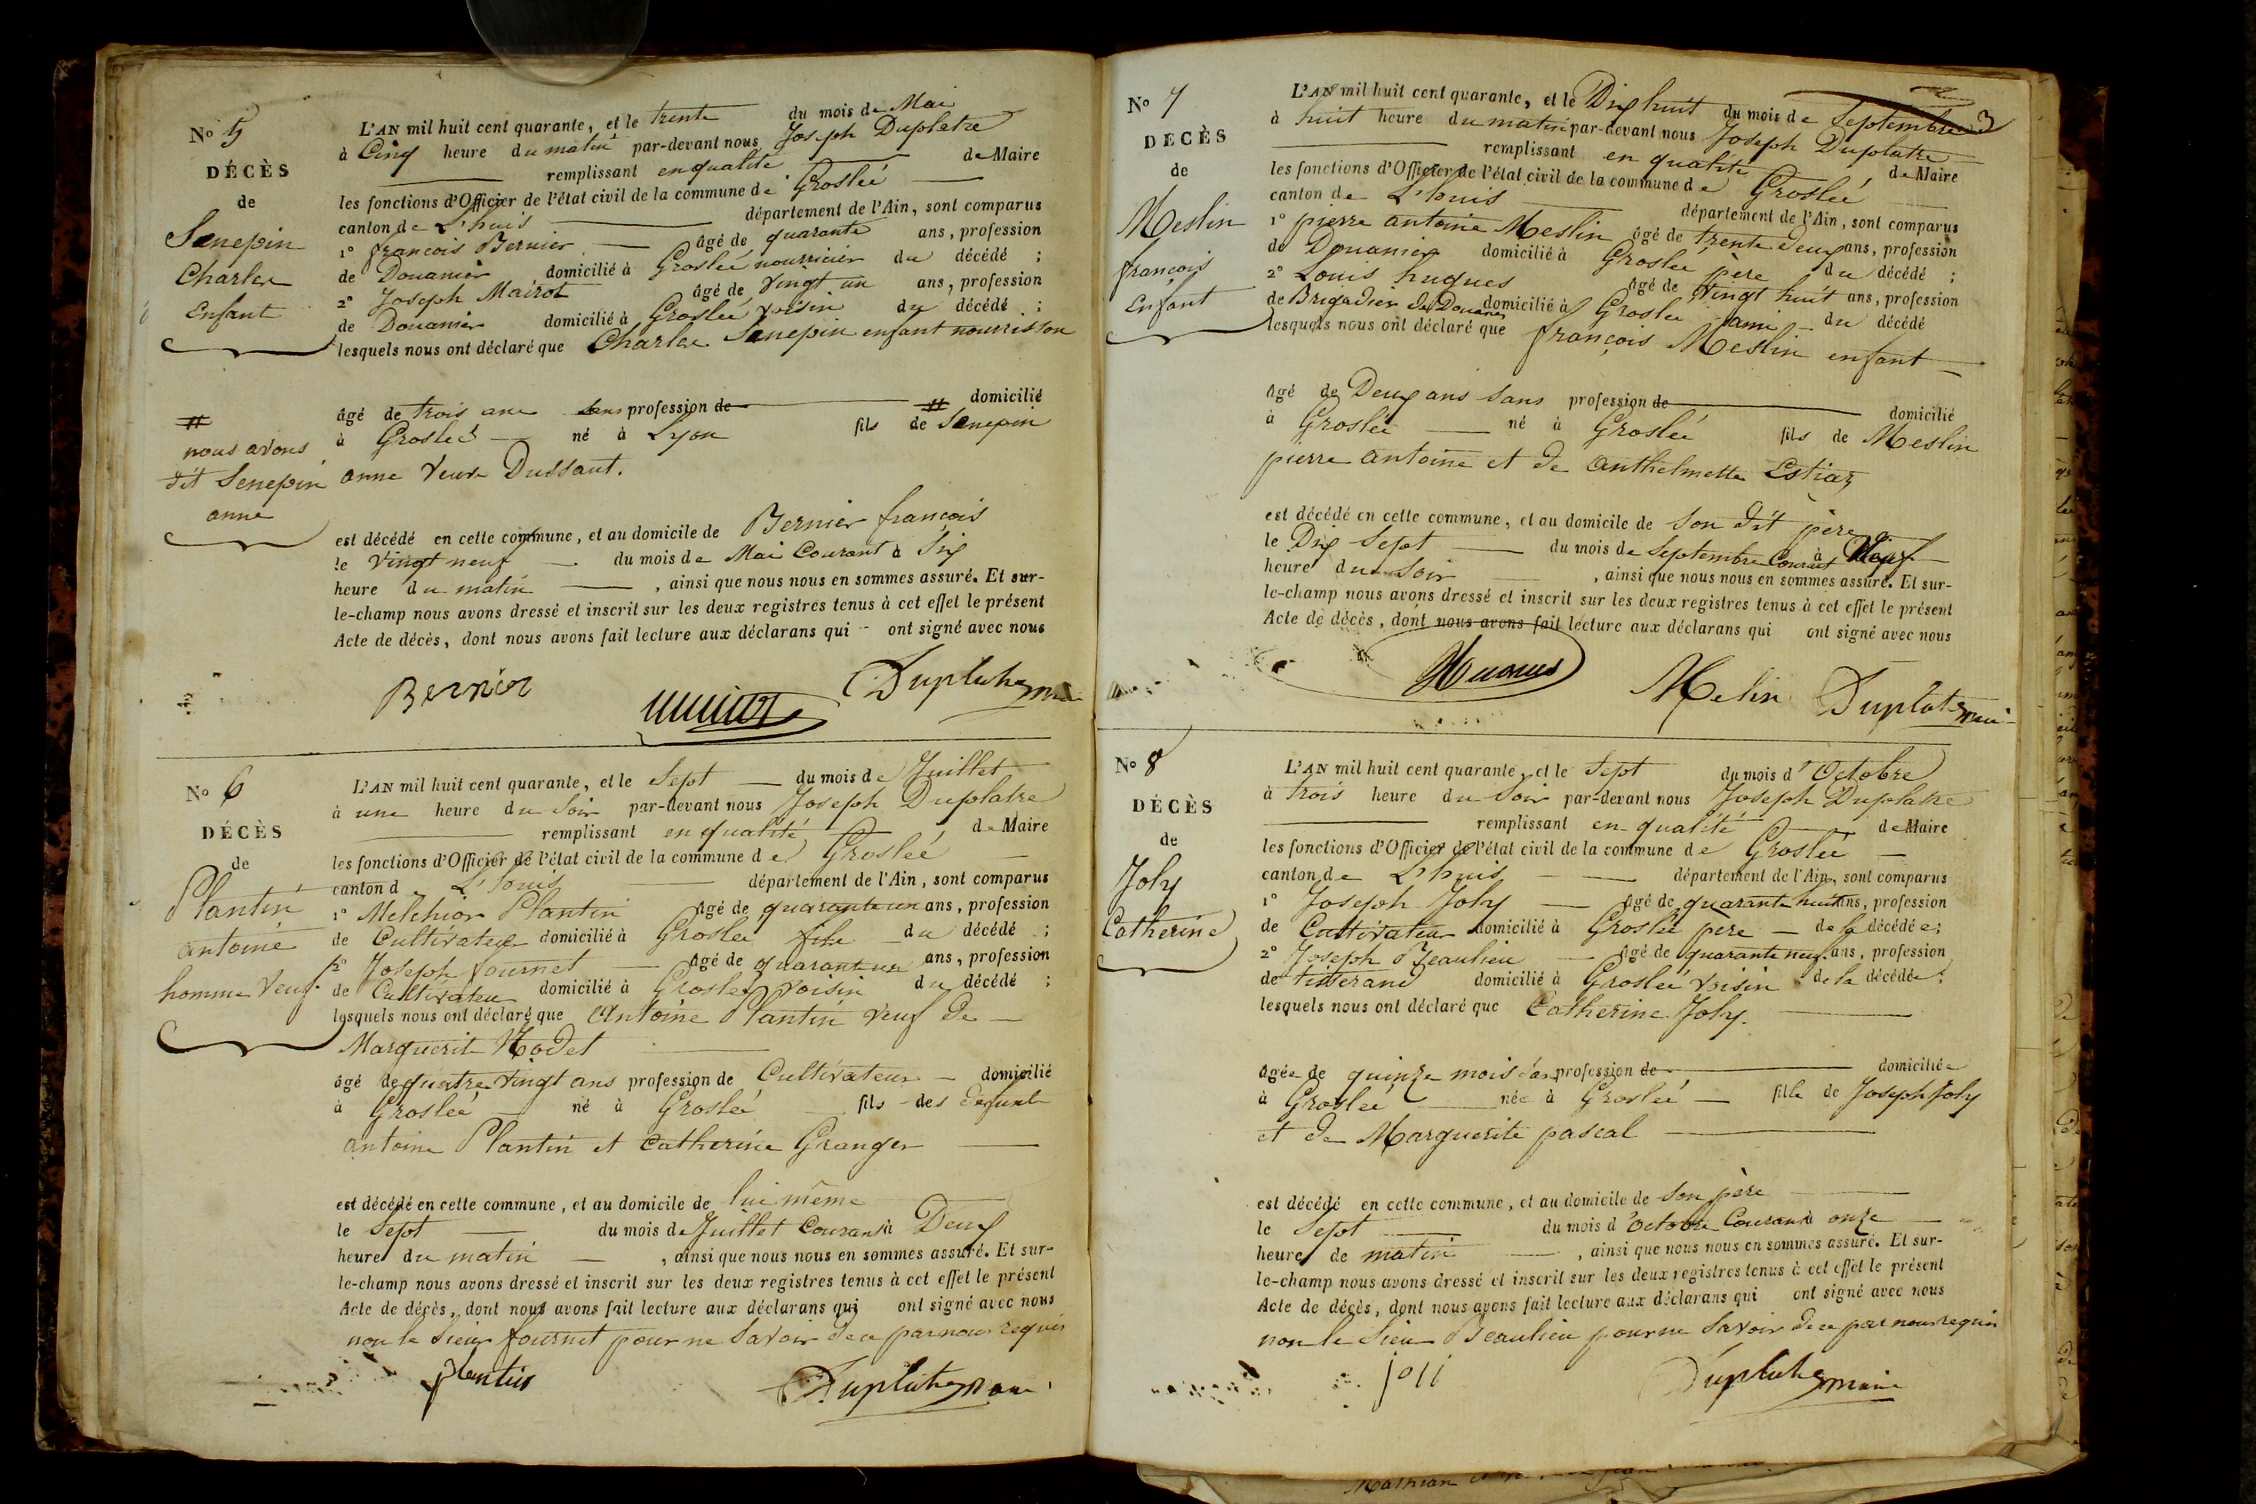 No 5
DÉCÈS
de
Senepin
Charles
Enfant
L'AN mil huit cent quarante, et le trente du mois de Mai
à Cinq heure du matin par-devant nous Joseph Duplatre
remplissant en qualité de Maire
les fonctions d'Officier de l'état civil de la commune de Groslée
canton de L'huis département de l'Ain, sont comparus
1° françois Bernier âgé de quarante ans, profession
de Douanier domicilié à Groslée nourricier du décédé ;
2° Joseph Mairot âgé de vingt un ans, profession
de Douanier domicilié à Groslée voisin du décédé ;
lesquels nous ont déclaré que Charles Senepin enfant nourrisson
âgé de trois ans sans profession de domicilié
à Groslée né à Lyon fils de # Senepin
anne veuve Dussaut.
#
nous avons
dit Senepin
anne
est décédé en cette commune, et au domicile de Bernier françois
le vingt neuf du mois de Mai Courant à Six
heure du matin , ainsi que nous nous en sommes assuré. Et sur-
le-champ nous avons dressé et inscrit sur les deux registres tenus à cet effet le présent
Acte de décès, dont nous avons fait lecture aux déclarans qui ont signé avec nous
Bernier Duplatre maire
No 6
DÉCÈS
de
Plantin
antoine
homme veuf
L'AN mil huit cent quarante, et le Sept du mois de Juillet
à une heure du Soir par-devant nous Joseph Duplatre
remplissant en qualité de Maire
les fonctions d'Officier de l'état civil de la commune de Groslée
canton d L'huis département de l'Ain, sont comparus
1° Melchior Plantin âgé de quarante un ans, profession
de Cultivateur domicilié à Groslée fils du décédé ;
2° Joseph fournet âgé de quarant un ans, profession
de Cultivateur domicilié à Groslée voisin du décédé ;
lesquels nous ont déclaré que Antoine Plantin veuf de
Marguerite Hodet
âgé de quatre vingt ans profession de Cultivateur domicilié
à Groslée né à Groslée fils des defunt
antoine Plantin et catherine Granger
est décédé en cette commune, et au domicile de lui même
le Sept du mois de Juillet Courant à Deux
heure du matin , ainsi que nous nous en sommes assuré. Et sur-
le-champ nous avons dressé et inscrit sur les deux registres tenus à cet effet le présent
Acte de décès, dont nous avons fait lecture aux déclarans qui ont signé avec nous
non le Sieur fournet pour ne Savoir de ce par nous requis
plantin Duplatre maire
3
No 7
DÉCÈS
de
Meslin
françois
Enfant
L'AN mil huit cent quarante, et le Dix huit du mois de Septembre
à huit heure du matin par-devant nous Joseph Duplatre
remplissant en qualité de Maire
les fonctions d'Officier de l'état civil de la commune de Groslée
canton de L'huis département de l'Ain, sont comparus
1° pierre antoine Meslin âgé de trente deux ans, profession
de Douanier domicilié à Groslée père du décédé ;
2° Louis hugues âgé de vingt huit ans, profession
de Brigadier des Douanes domicilié à Groslée ami du décédé
lesquels nous ont déclaré que françois Meslin enfant
âgé de Deux ans Sans profession de domicilié
à Groslée né à Groslée fils de Meslin
pierre antoine et de Anthelmette Estiaz
est décédé en cette commune, et au domicile de son dit père
le Dix Sept du mois de Septembre Courant à Neuf
heure du Soir , ainsi que nous nous en sommes assuré. Et sur-
le-champ nous avons dressé et inscrit sur les deux registres tenus à cet effet le présent
Acte de décès, dont nous avons fait lecture aux déclarans qui ont signé avec nous
Hugues Melin Duplatre maire
No 8
DÉCÈS
de
Joly
Catherine
L'AN mil huit cent quarante, et le Sept du mois d'Octobre
à trois heure du Soir par-devant nous Joseph Duplatre
remplissant en qualité de Maire
les fonctions d'Officier de l'état civil de la commune de Groslée
canton de L'huis département de l'Ain, sont comparus
1° Joseph Joly âgé de quarante huit ans, profession
de Cultivateur domicilié à Groslée père de la décédée ;
2° Joseph Beaulieu âgé de quarante neuf ans, profession
de tisserand domicilié à Groslée voisin de la décédée ;
lesquels nous ont déclaré que Catherine Joly.
âgée de quinze mois sans profession de domiciliée
à Groslée née à Groslée fille de Joseph Joly
et de Marguerite pascal
est décédé en cette commune, et au domicile de son père
le Sept du mois d'octobre Courant à onze
heure de matin , ainsi que nous nous en sommes assuré. Et sur-
le-champ nous avons dressé et inscrit sur les deux registres tenus à cet effet le présent
Acte de décès, dont nous avons fait lecture aux déclarans qui ont signé avec nous
non le Sieur Beaulieu pour ne Savoir de ce par nous requis
joli Duplatre maire